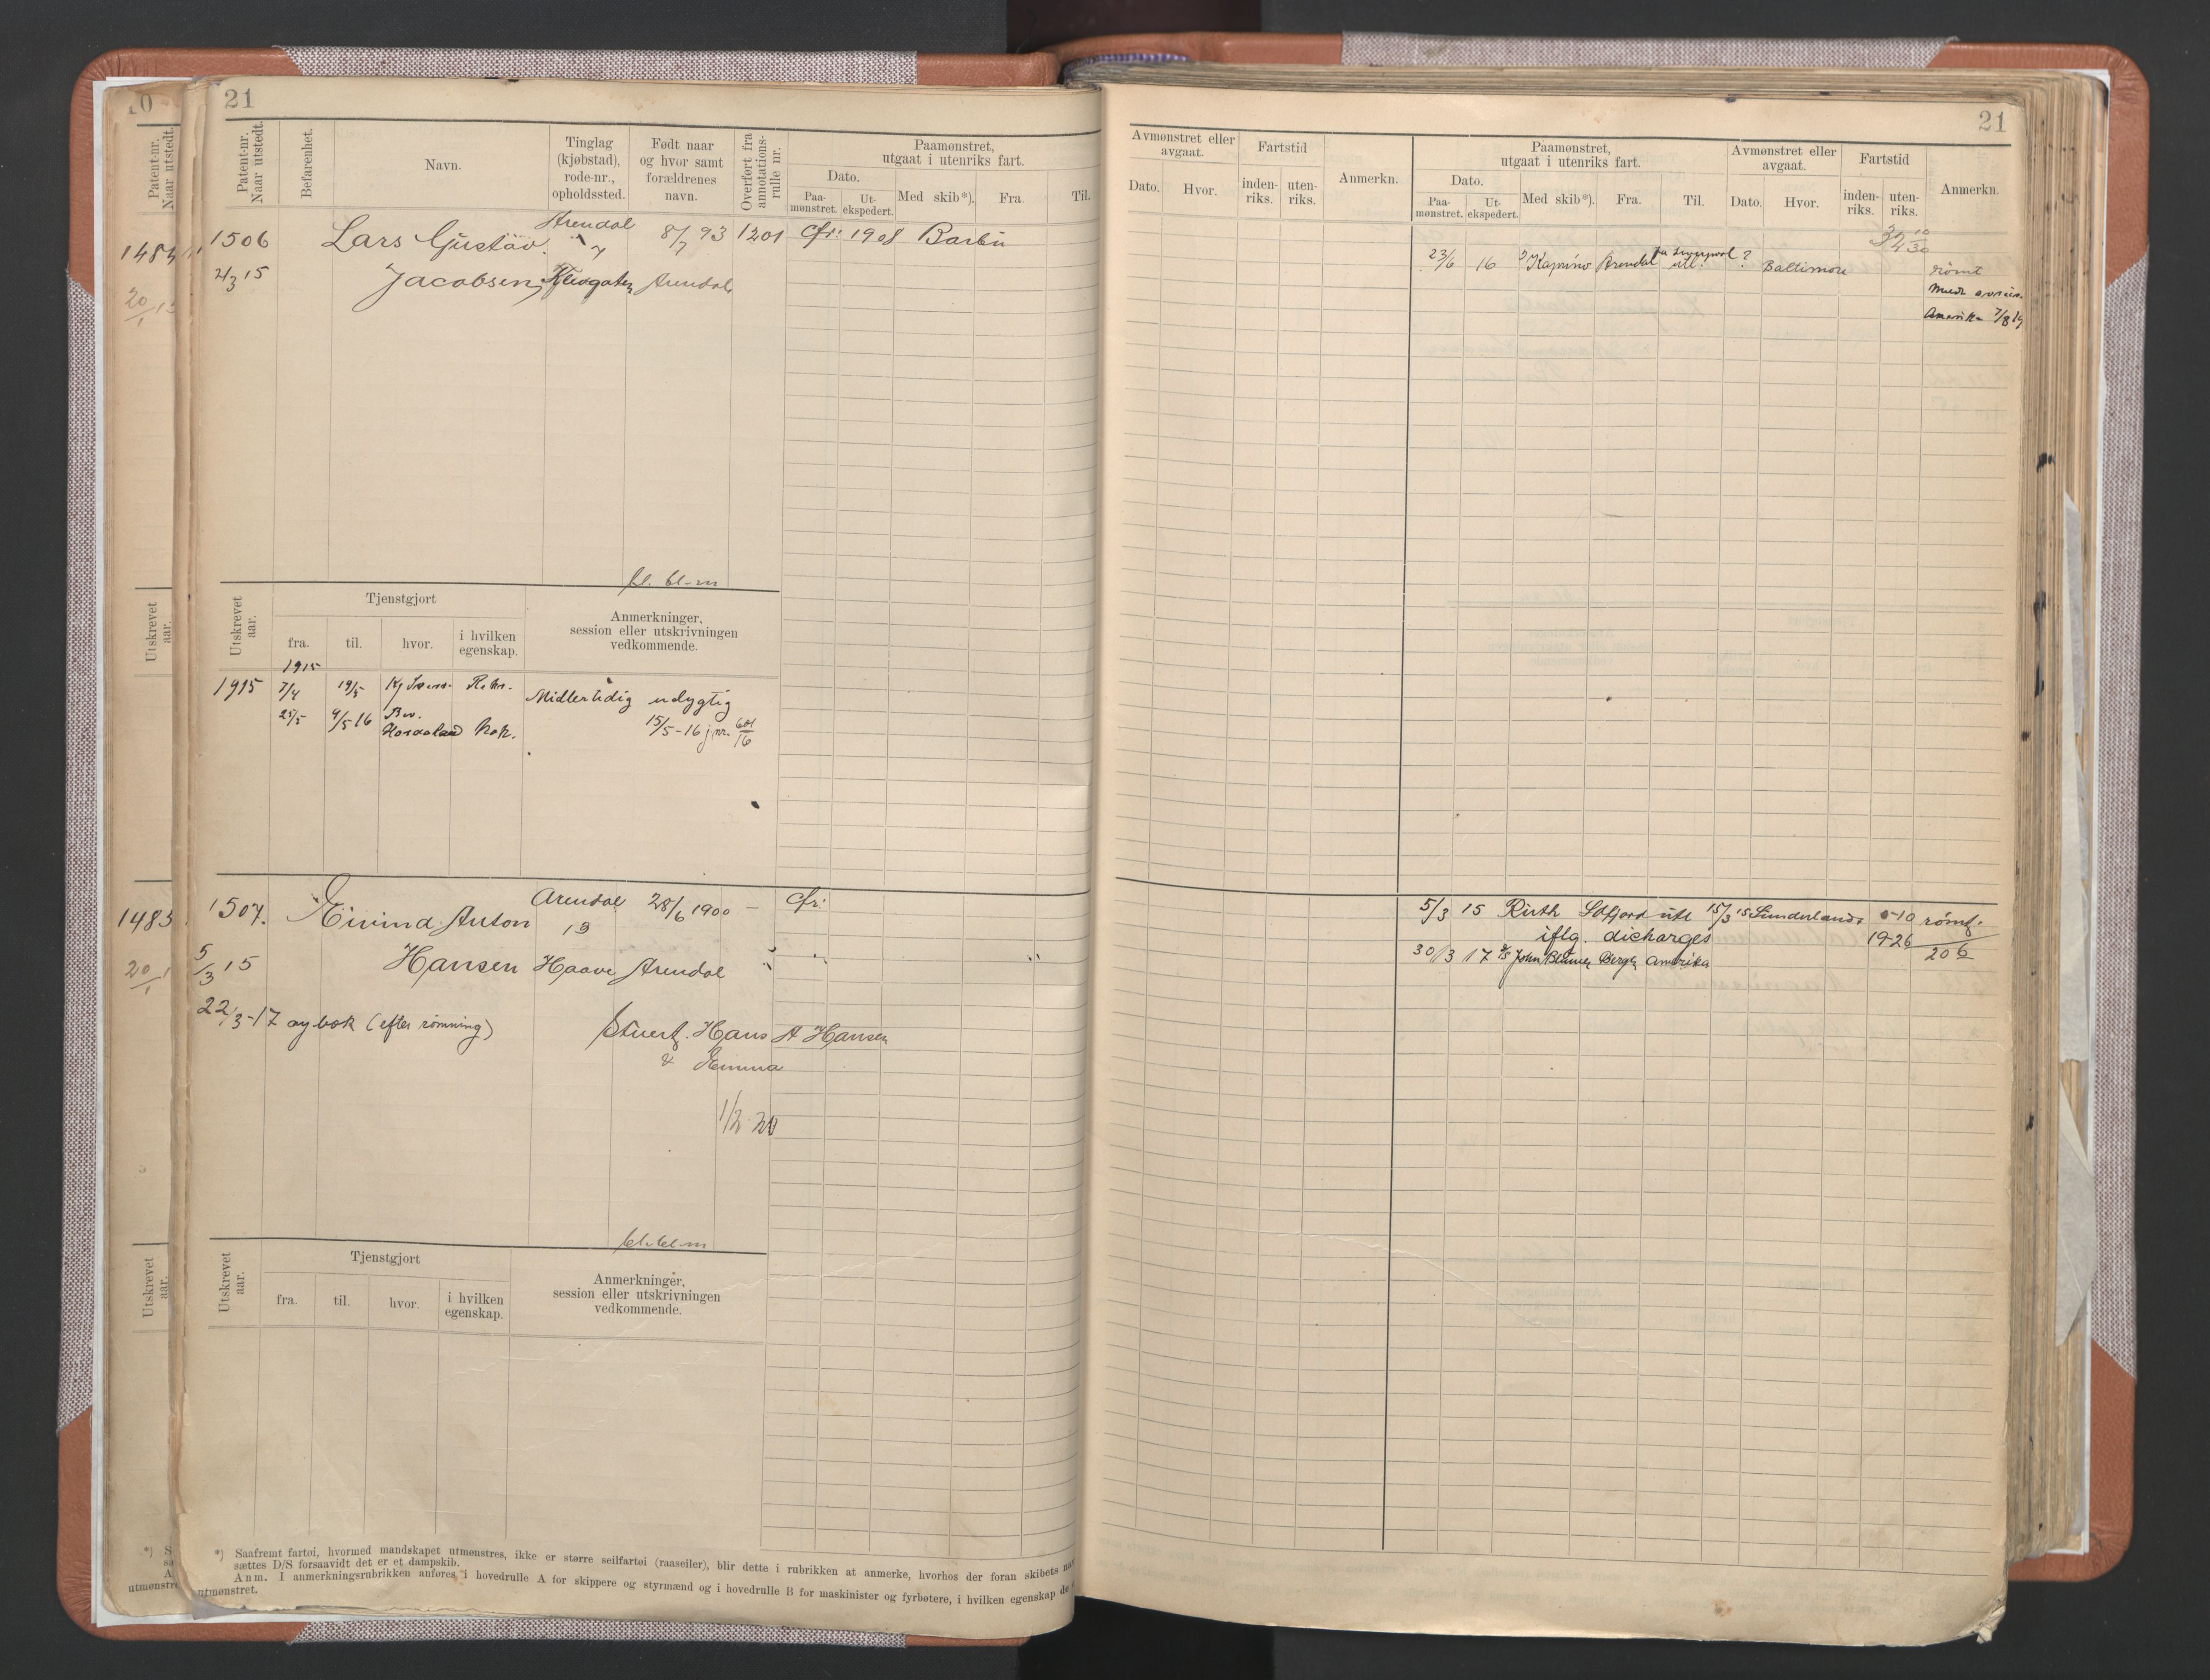 21
Patent-nr.
Naar utstedt.
Befarenhet.
Navn.
Tinglag
(kjøbstad),
rode-nr.,
opholdssted.
Født naar
og hvor samt
forældrenes
navn.
Overført fra
annotations-
rulle nr.
Paamønstret,
utgaat i utenriks fart.
Dato.
Paa-
mønstret.
Ut-
ekspedert.
Med skib*).
Fra.
Til.
1506
Lars Gustav
Arendal
7
8/7 93
1201
Cfr. 1908 Barbu
4/3 15
Jacobsen
Klevgaten
Arendal
bl. bl-m
Utskrevet
aar.
Tjenstgjort
fra.
til.
hvor.
i hvilken
egenskap.
Anmerkninger,
session eller utskrivningen
vedkommende.
1915
1915
7/4
19/5
Rekr.
Midlertidig udygtig
25/5
9/5 16
Hordaland
Kok.
15/5-16 jnr. 601/16
1507.
Eivind Anton
Arendal
19
28/6 1900
-
Cfr:
5/3 15
Hansen
Haave
Arendal
22/3-17 ny bok (efter rømning)
Stuert. Hans A Hansen
& Emma
1/2 20
bl. bl-m
Utskrevet
aar.
Tjenstgjort
fra.
til.
hvor.
i hvilken
egenskap.
Anmerkninger,
session eller utskrivningen
vedkommende.
*) Saafremt fartøi, hvormed mandskapet utmønstres, ikke er større seilfartøi (raaseiler), blir dette i rubrikken at anmerke, hvorhos der foran skibets
sættes D/S forsaavidt det er et dampskib.
Anm. I anmerkningsrubrikken anføres i hovedrulle A for skippere og styrmænd og i hovedrulle B for maskinister og fyrbøtere, i hvilken egenskap de
utmønstret.
Patent-nr.
Naar utstedt.
1484
20/1
Utskrevet
aar.
1485
20/1
Utskrevet
aar.
21
Avmønstret eller
avgaat.
Dato.
Hvor.
Fartstid
inden-
riks.
uten-
riks.
Anmerkn.
Paamønstret,
utgaat i utenriks fart.
Dato.
Paa-
mønstret.
Ut-
ekspedert.
Med skib*).
Fra.
Til.
Avmønstret eller
avgaat.
Dato.
Hvor.
Fartstid
inden-
riks.
uten-
riks.
Anmerkn.
23/6 16
Kamino
Arendal
utl.
?
Baltimore
rømt
Amerika 7/8 19
5/3 15 Ruth
utl
15/3 15 Sunderland
0-10
rømt.
iflg. dicharges
19-26
20 6
30/3 17
Bergen
Amerika